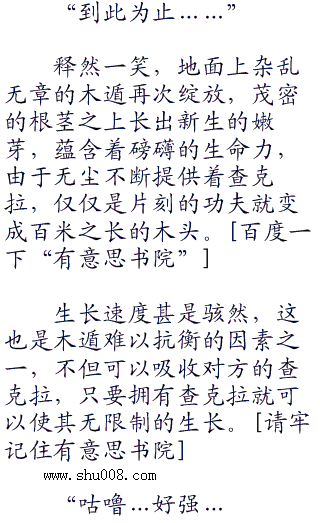 “到此为止……”
释然一笑，地面上杂乱
无章的木遁再次绽放，茂密
的根茎之上长出新生的嫩
芽，蕴含着磅礴的生命力，
由于无尘不断提供着查克
拉，仅仅是片刻的功夫就变
成百米之长的木头。[百度一
下“有意思书院”]
生长速度甚是骇然，这
也是木遁难以抗衡的因素之
一，不但可以吸收对方的查
克拉，只要拥有查克拉就可
以使其无限制的生长。[请牢
记住有意思书院]
www.shu008.com
“咕噜…好强…